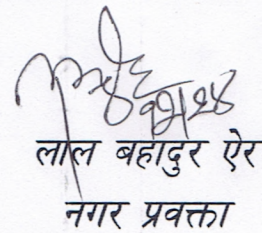 लाल बहादुर ऐर
नगर प्रवक्ता